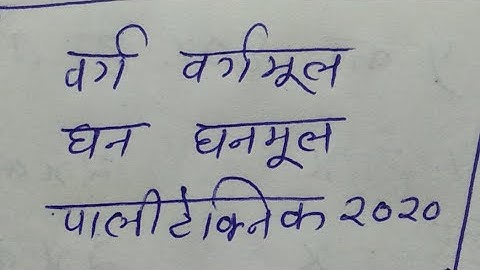 वर्ग वर्गमूल
घन घनमूल
पालीटेक्निक २०२०